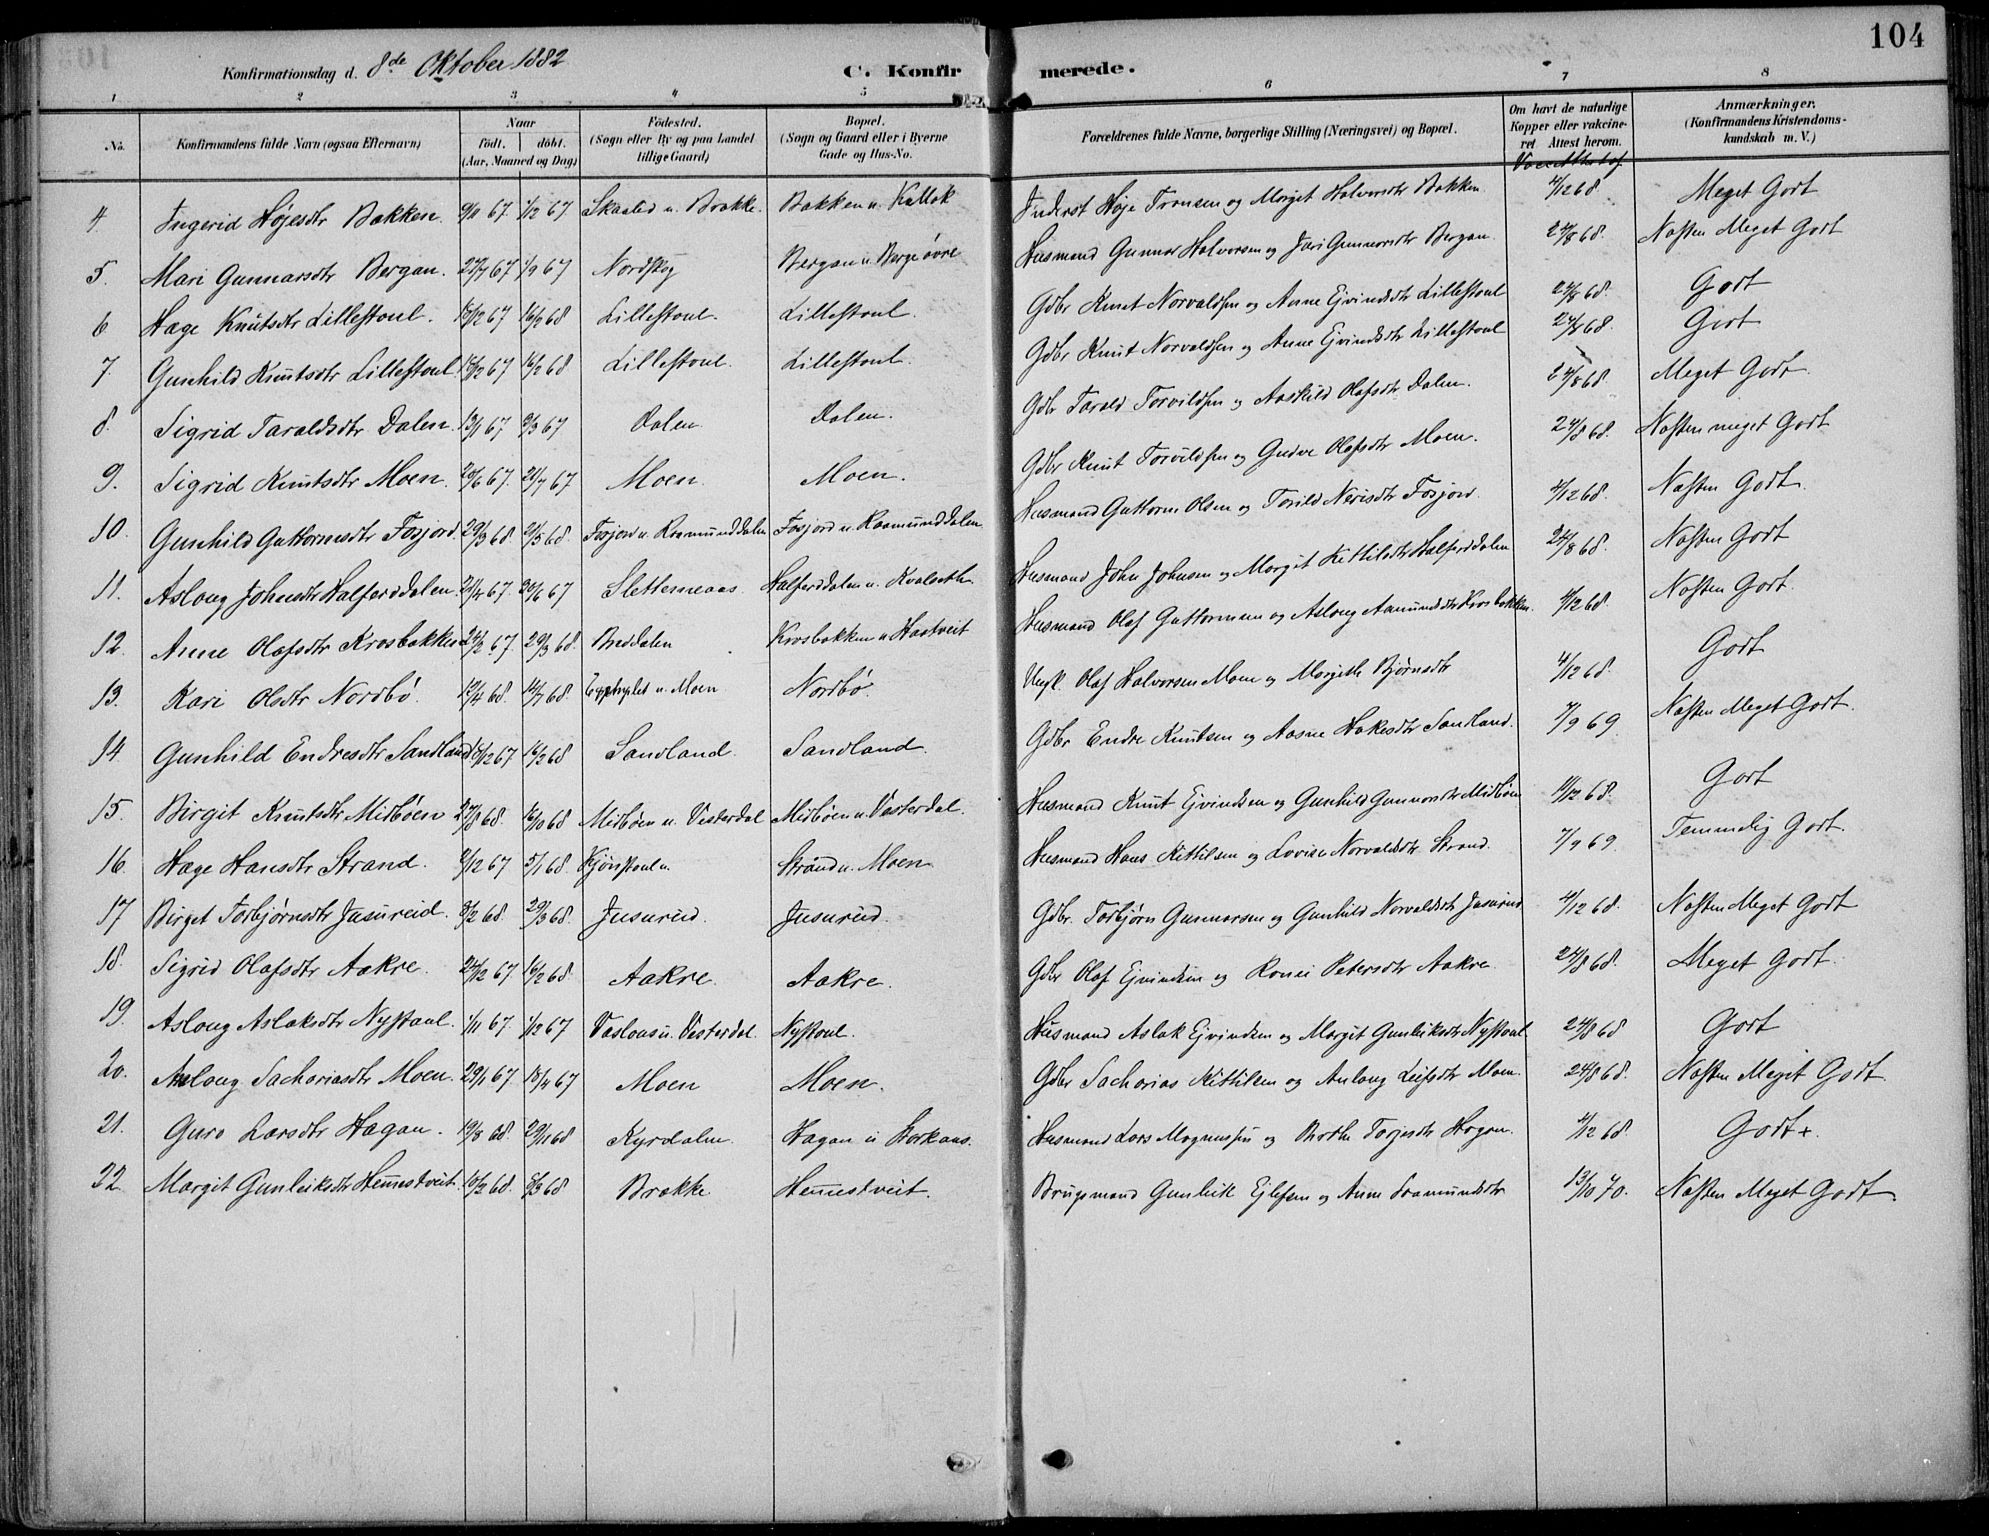 104
Konfirmationsdag d. 8de Oktober 1882 C. Konfirmerede.
1 2 3 4 5 6 7 8
No. Konfirmandens fulde Navn (ogsaa Efternavn) Naar födt. döbt. (Aar, Maaned og Dag) Födested. (Sogn eller By og paa Landet tillige Gaard) Bopæl. (Sogn og Gaard eller i Byerne Gade og Hus-No. Forældrenes fulde Navne, borgerlige Stilling (Næringsvei) og Bopæl. Om havt de naturlige Kopper eller vakcineret Attest herom. Anmærkninger. (Konfirmandens Kristendomskundskab m. V.)
4. Ingerid Højesdtr Bakken 67 1/12 67 u. Brække. Bakken u. Kallak Inderst Høje Tronsen og Margit Halvorsdtr Bakken 4/12 68. Meget Godt
5. Mari Gunnarsdtr Bergan. 27/7 67 1/9 67 Nordskog Bergan u. Berge øvre Husmand Gunnar Halvorsen og Jari Gunnarsdtr Bergan 24/8 68. Næsten Meget Godt
6 Hæge Knutsdtr Lillestoul. 15/12 67 16/2 68 Lillestoul. Lillestoul. Gdbr Knut Norvaldsen og Anne Ejvindsdtr Lillestoul 24/8 68. Godt
7. Gunhild Knutsdtr Lillestoul 15/12 67 16/2 68 Lillestoul. Lillestoul. Gdbr Knut Norvaldsen og Anne Ejvindsdtr Lillestoul 24/8 68. Godt
8. Sigrid Taraldsdtr Dalen. 13/1 67 3/3 67 Dalen Dalen. Gdbr Tarald Torvildsen og Aashild Olafsdtr Dalen. 24/8 68. Meget Godt
9. Sigrid Knutsdtr Moen. 29/6 67. 21/7 67 Moen. Moen. Gdbr Knut Torvildsen og Gudve Olafsdtr Moen. 24/8 68. Næsten meget Godt
10. Gunhild Guttormsdtr Fosjord 29/3 68 21/5 68. Fosjord u. Raamunddalen Fosjord u. Raamunddalen Husmand Guttorm Olsen og Torild Nerisdtr Fosjord. 4/12 68. Næsten Godt.
11. Asloug Johnsdtr Halferddalen. 21/4 67. 30/6 67 Slettemeaas Halferddalen u. Kvalseth. Husmand John Johnsen og Margit Kittilsdtr Halferddalen 24/8 68. Næsten Godt
12. Anne Olafsdtr Krosbakken 24/12 67. 29/3 68. Bøddalen Krosbakken u. Haatveit Husmand Olaf Guttormsen og Aslong Aamundsdtr Krosbakken. 4/12 68. Næsten Godt.
13. Kari Olsdtr Nordbø. 12/4 68. 14/7 68. u. Moen Nordbø. Ungk. Olaf Halvorsen Moen og Margithe Bjørnsdtr 4/12 68. Godt
14. Gunhild Endresdtr Sandland 17/12 67 16/2 68 Sandland Sandland. Gdbr Endre Knutsen og Aasne Hakesdtr Sandland. 7/9 69. Næsten Meget Godt.
15. Birgit Knutsdtr Midbøen 27/8 68. 16/10 68 Midbøen u. Vesterdal Midbøen u. Vesterdal. Husmand Knut Ejvindsen og Gunhild Gunnarsdtr Midbøen 11/12 68 Godt
16. Hæge Hansdtr Strand. 8/12 67 5/1 68. Kjønstoul u. Strand u. Moen Husmand Hans Kittilsen og Lovise Norvaldsdtr Strand. 7/9 69. Temmelig Godt.
17 Birget Torbjørnsdtr Jusureid. 8/2 68. 29/3 68. Jusureid. Jusureid. Gdbr. Torbjørn Gunnarsen og Gunhild Norvaldsdtr Jusureid 4/12 68. Næsten Meget Godt
18. Sigrid Olafsdtr Aakre. 24/12 67. 16/2 68. Aakre. Aakre. Gdbr Olaf Ejvindsen og Ronei Petersdtr Aakre 24/8 68. Meget Godt.
19. Aslong Aslaksdtr Nystoul. 1/11 67. 1/12 67 Vaslaas u. Vesterdal. Nystoul. Husmand Aslak Ejvindsen og Margit Gunleiksdtr Nystoul 24/8 68 Godt
20. Aslong Sachariasdtr Moen. 29/1 67. 18/4 67 Moen Moen. Gdbr Sacharias Kittilsen og Anlong Leifsdtr Moen. 24/8 68. Næsten Meget Godt.
21. Guro Larsdtr Hagan. 19/8 68. 29/11 68 Kyrdalen. Hagan u Borkaas. Husmand Lars Magnussen og Birthe Torjusdtr Hagan. 4/12 68. Godt+.
22. Margit Gunleiksdtr Hemmestveit. 10/2 68. 8/3 68 Brække Hemmestveit. Brugsmand Gunleik Ejlefsen og Anne Saamundsdtr 13/10 70. Næsten Meget Godt.